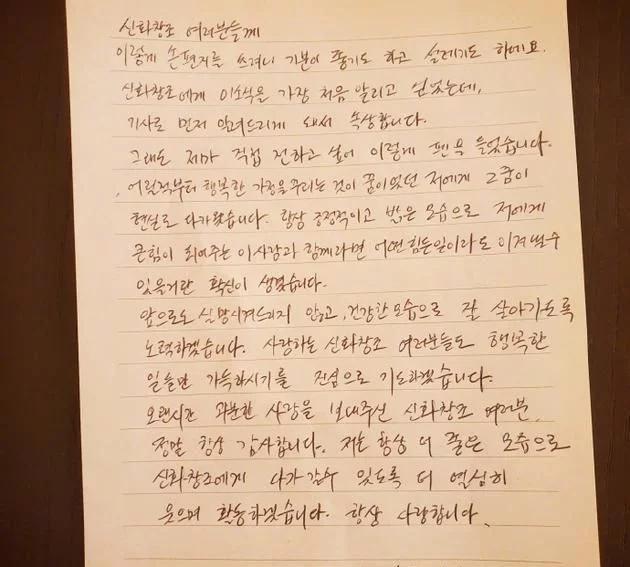 신화창조 여러분들께
이렇게 손편지를 쓰려니 기분이 좋기도 하고 설레기도 하네요.
신화창조에게 이소식을 가장 처음 알리고 싶었는데,
기사로 먼저 알려드리게 되서 속상합니다.
그래도 제가 직접 전하고 싶어 이렇게 펜을 들었습니다.
어릴적부터 행복한 가정을꾸리는 것이 꿈이었던 저에게 그꿈이
현실로 다가왔습니다. 항상 긍정적이고 밝은 모습으로 저에게
큰힘이 되어주는 이사람과 함께라면 어떤힘든일이라도 이겨낼수
있을거란 확신이 생겼습니다.
앞으로도 실망시켜드리지 않고, 건강한 모습으로 잘 살아가도록
노력하겠습니다. 사랑하는 신화창조 여러분들도 행복한
일들만 가득하시기를 진심으로 기도하겠습니다.
오랜시간 과분한 사랑을 보내주신 신화창조 여러분,
정말 항상 감사합니다. 저는 항상 더 좋은 모습으로
신화창조에게 다가갈수 있도록 더 열심히
웃으며 활동하겠습니다. 항상 사랑합니다.